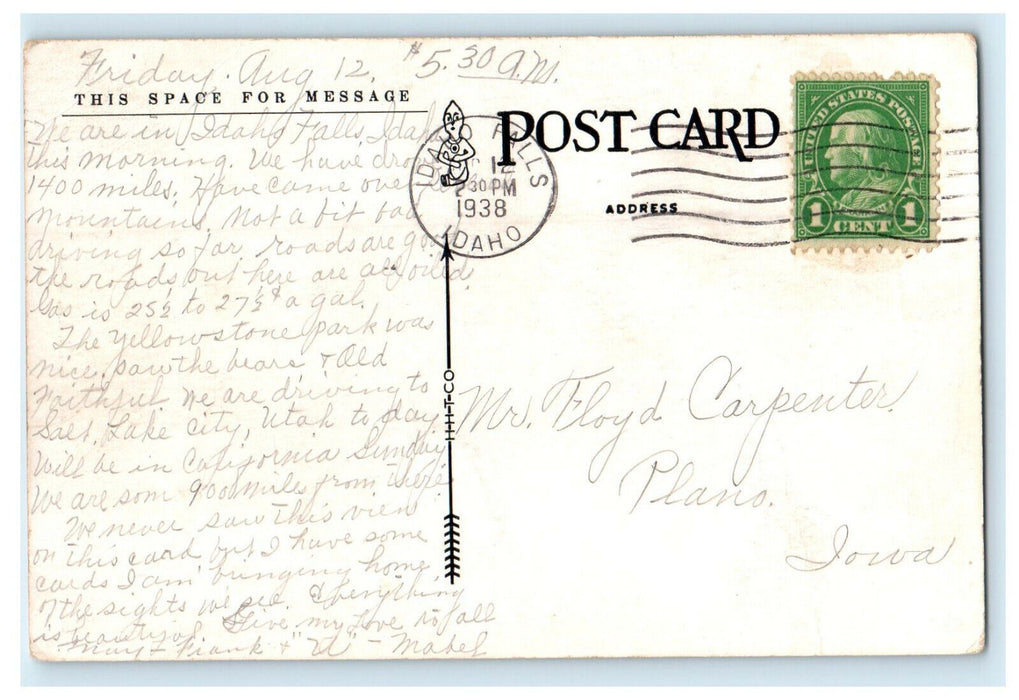 Friday, Aug 12, #5.30 A.M.
THIS SPACE FOR MESSAGE
We are in Idaho Falls, Idaho
this morning. We have drove
1400 miles. Have came over
mountains. Not a bit bad
driving so far. roads are good
the roads out here are all oiled.
Gas is 25½ to 27½¢ a gal.
The Yellowstone park was
nice. saw the bears & Old
Faithful we are driving to
Salt Lake city, Utah to day
Will be in California Sunday
We are som 900 miles from there
We never saw this view
on this card but I have some
cards I am bringing home
of the sights we see. Everything
is beautiful. Give my love to all
May - Frank & "U" - Mabel
POST CARD
ADDRESS
IDAHO FALLS
12
30 PM
1938
IDAHO
UNITED STATES POSTAGE
1 CENT 1
H-H-T-CO
Mr. Floyd Carpenter.
Plano.
Iowa.